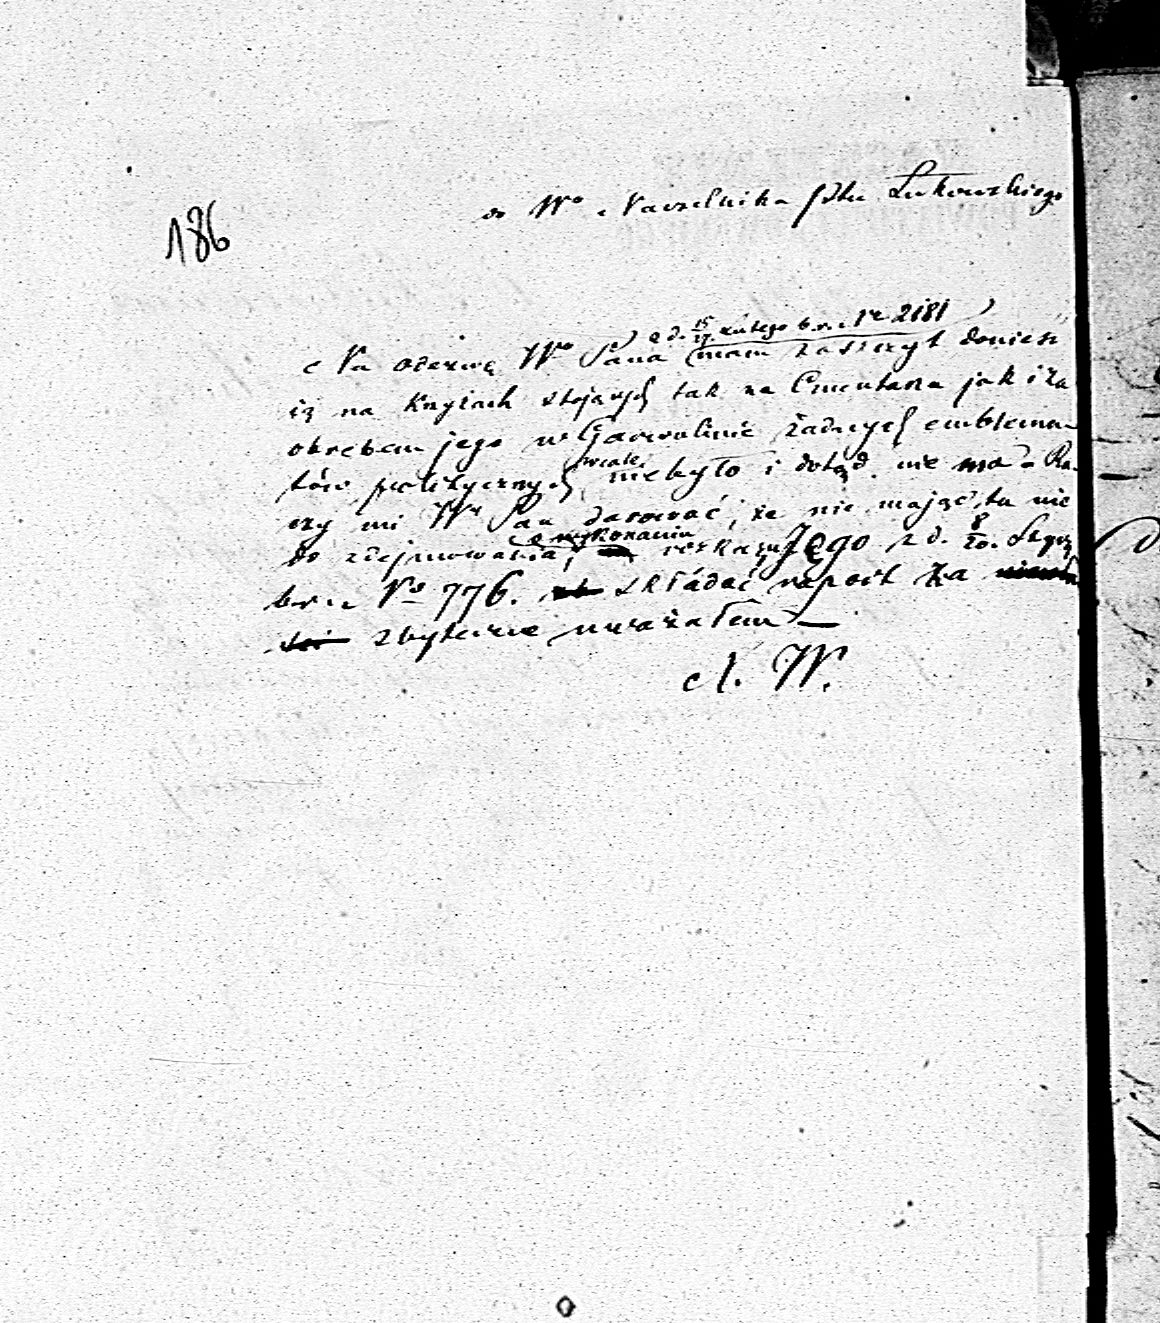 186
do Wo Naczelnika Ptu Łukowskiego
z d. 15/27 Lutego b. r. Nr 2181
Na odezwę Wo Pana mam zaszczyt donieść
iż na Krzyżach stojących tak na Cmentarzu jak i za
obrębem jego w Garwolinie żadnych emblema-
tów politycznych niebyło i dotąd nie ma. Ra-
czy mi W. Pan darować, że nie mając tu nic
o wykonaniu
do zdejmowania, rozkazu Jego z d. 8/20. Stycz
b. r. No 776. składać raport za
zbyteczne uważałem
A. W.